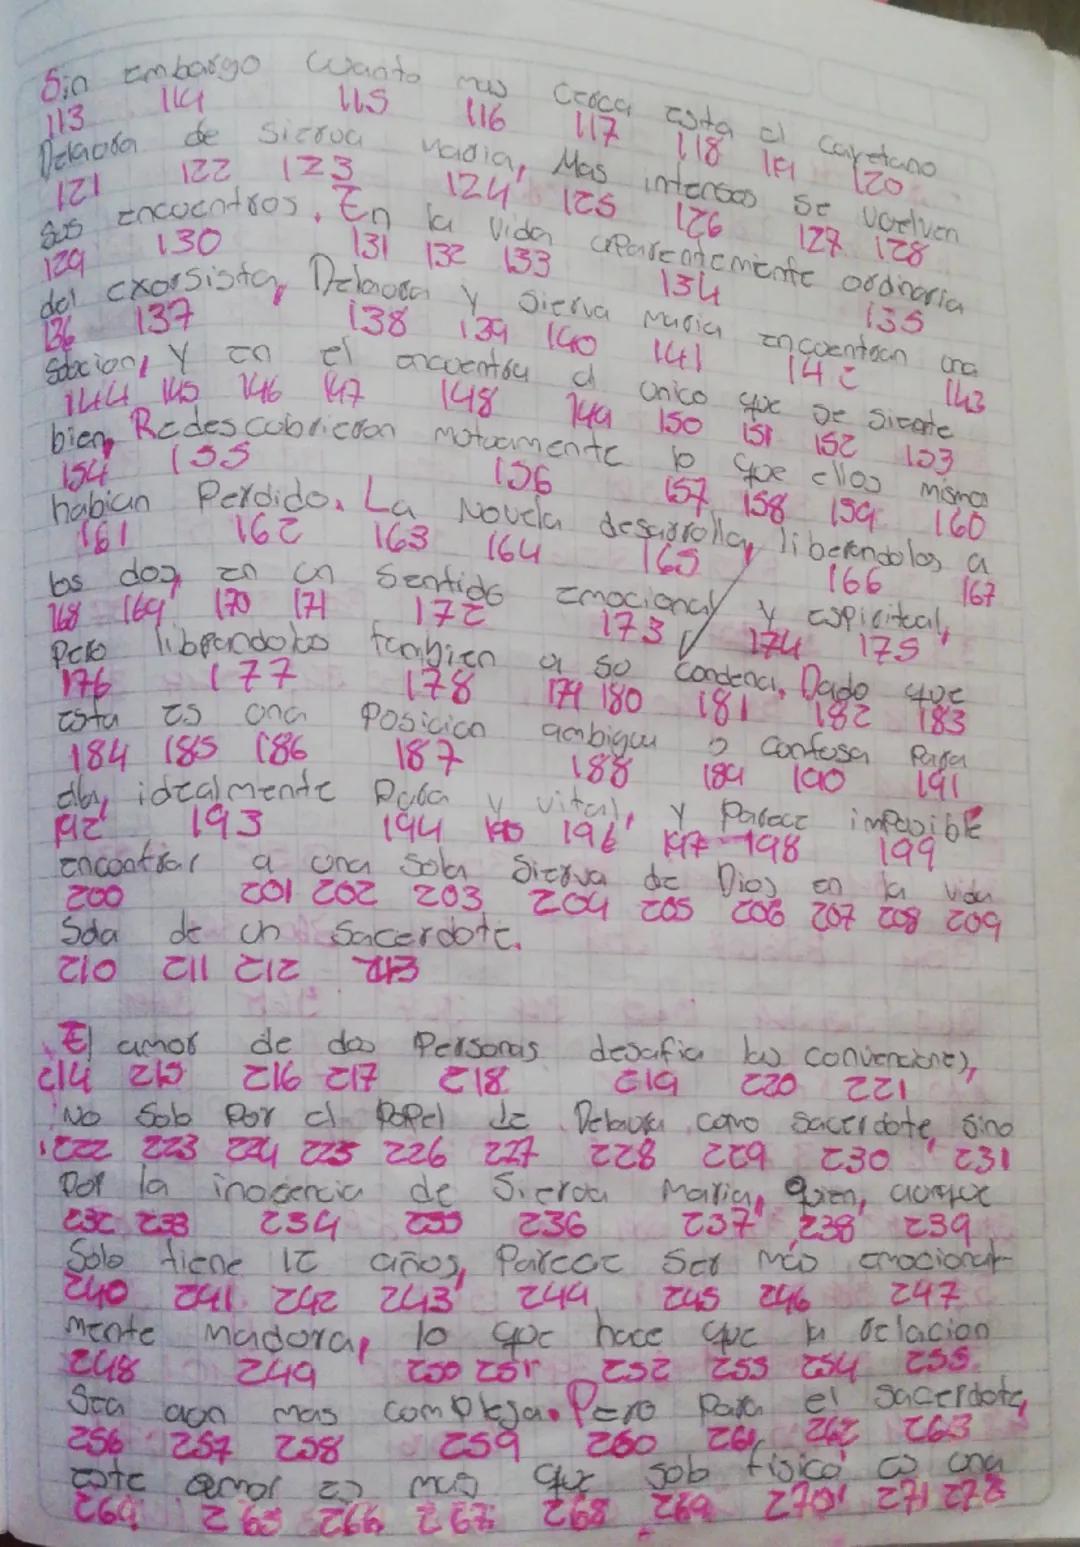 Sin embargo cuanto mas cerca esta el Cayetano
113 114 115 116 117 118 119 120
Delaora de Sierva Maria, Mas intensos se vuelven
121 122 123 124 125 126 127 128
sus encuentros. En la vida aparentemente ordinaria
129 130 131 132 133 134 135
del exorsista, Delaora y Sierva Maria encuentran una
136 137 138 139 140 141 142 143
y en el encuentro el unico que se siente
144 145 146 147 148 149 150 151 152 153
bien, Redescubrieron mutuamente lo que ellos mismos
154 155 156 157 158 159 160
habian Perdido. La Novela desarrolla, liberandolos a
161 162 163 164 165 166 167
los dos, en un Sentido emocional y espiritual,
168 169 170 171 172 173 174 175
Pero librandolos tambien a su Condena. Dado que
176 177 178 179 180 181 182 183
esta es una Posicion ambigua o confusa Para
184 185 186 187 188 189 190 191
ellos, idealmente Para y vital, y Parece imposible
192 193 194 195 196 197 198 199
encontrar a una sola Sierva de Dios en la vida
200 201 202 203 204 205 206 207 208 209
Sola de un Sacerdote.
210 211 212 213
El amor de dos Personas desafia las convenciones,
214 215 216 217 218 219 220 221
No Solo Por el Papel de Delaura como Sacerdote, Sino
222 223 224 225 226 227 228 229 230 231
Por la inocencia de Sierva Maria, quien, aunque
232 233 234 235 236 237 238 239
Solo tiene 12 años, Parece Ser más emocional-
240 241 242 243 244 245 246 247
mente madura, lo que hace que la relacion
248 249 250 251 252 253 254 255
Sea aun mas compleja. Pero Para el Sacerdote,
256 257 258 259 260 261 262 263
este amor es mas que solo fisico es una
264 265 266 267 268 269 270 271 272